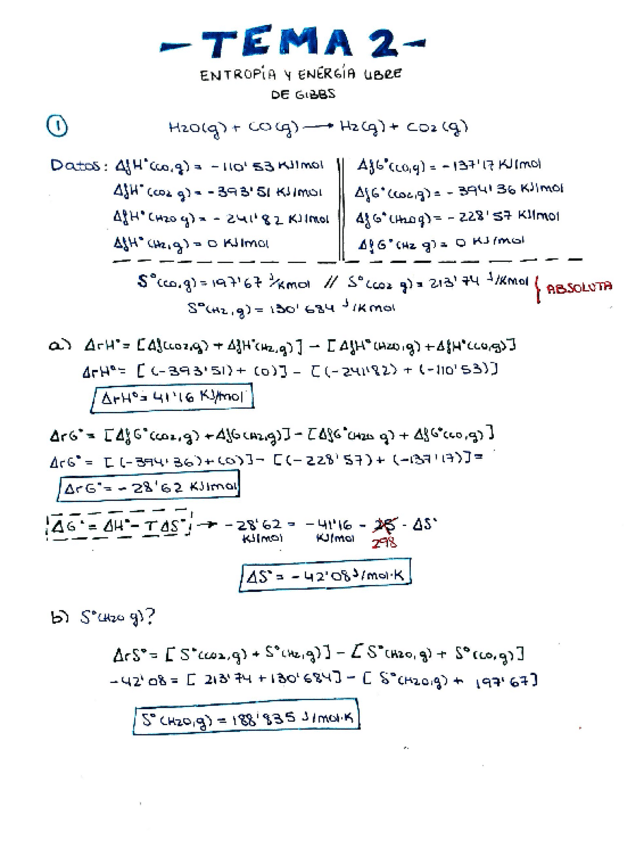 - TEMA 2 -
ENTROPÍA Y ENERGÍA LIBRE
DE GIBBS
① H2O(g) + CO(g) → H2(g) + CO2(g)
Datos: ΔfH°(CO,g) = -110'53 KJ/mol
ΔfH°(CO2 g) = -393'51 KJ/mol
ΔfH°(H2O g) = -241'82 KJ/mol
ΔfH°(H2,g) = 0 KJ/mol
ΔfG°(CO,g) = -137'17 KJ/mol
ΔfG°(CO2,g) = -394'36 KJ/mol
ΔfG°(H2O g) = -228'57 KJ/mol
ΔfG°(H2 g) = 0 KJ/mol
S°(CO,g) = 197'67 J/Kmol // S°(CO2 g) = 213'74 J/Kmol { ABSOLUTA
S°(H2,g) = 130'684 J/Kmol
a) ΔrH° = [Δf(CO2,g) + ΔfH°(H2,g)] - [ΔfH°(H2O,g) + ΔfH°(CO,g)]
ΔrH° = [(-393'51) + (0)] - [(-241'82) + (-110'53)]
ΔrH° = 41'16 KJ/mol
ΔrG° = [ΔfG°(CO2,g) + ΔfG(H2,g)] - [ΔfG°(H2O g) + ΔfG°(CO,g)]
ΔrG° = [(-394'36) + (0)] - [(-228'57) + (-137'17)] =
ΔrG° = -28'62 KJ/mol
ΔG° = ΔH° - TΔS° → -28'62 = -41'16 - 25 · ΔS°
KJ/mol KJ/mol 298
ΔS° = -42'08 J/mol·K
b) S°(H2O g)?
ΔrS° = [S°(CO2,g) + S°(H2,g)] - [S°(H2O,g) + S°(CO,g)]
-42'08 = [213'74 + 130'684] - [S°(H2O,g) + 197'67]
S°(H2O,g) = 188'835 J/mol·K